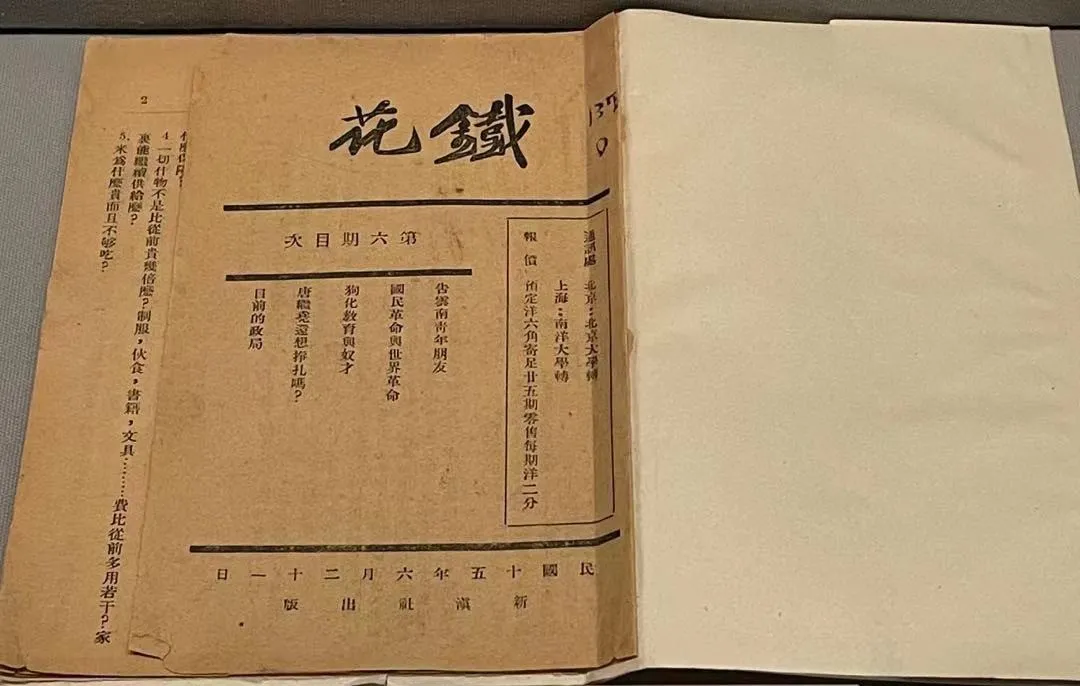 鐵花
第六期目次
告雲南青年朋友
國民革命與世界革命
狗化教育與奴才
唐繼堯還想掙扎嗎?
目前的政局
通訊處 北京:北京大學轉
上海:南洋大學轉
報價 預定洋六角寄足廿五期零售每期洋二分
民國十五年六月二十一日
新滇社出版
137
2
4. 一切什物不是比從前貴幾倍麼?制服,伙食,書籍,文具………費比從前多用若干?家
裏能繼續供給麼?
5. 米爲什麼貴而且不够吃?